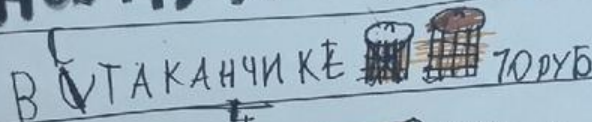 В СТАКАНЧИКЕ 70РУБ